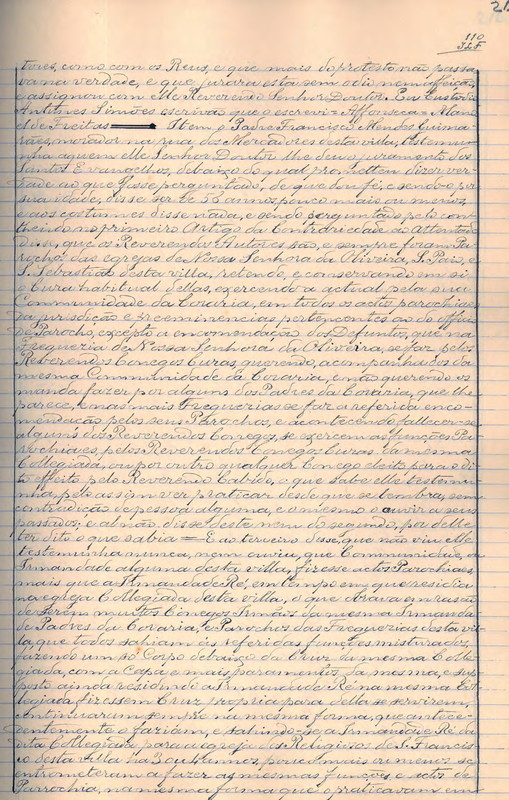 110
tores, como com os Reus, e que mais do protesto, não passa
va na verdade, e que jurara esta sem odio nem affeição,
e assignou com elle Reverendo Senhor Doutor. Eu Custodio
Antunes Simões escrivão que o escrevi = Affonseca =
de Freitas = Item o Padre Francisco Mendes Guima
rães, morador na rua dos Mercadores desta villa, testemu
nha a quem elle Senhor Doutor lhe deu o juramento dos
Santos Evangelhos, debaixo do qual prometteu dizer ver
dade ao que fosse perguntado, de que dou fé; e sendo
sua idade, disse ser de 55 annos, pouco mais ou menos,
e aos costumes disse nada, e sendo perguntado pelo con
theudo no primeiro Artigo da Contrariedade ao Attentado
Disse, que os Reverendos Autores são, e sempre foram Pa
rochos das egrejas de Nossa Senhora da Oliveira, S. Paio, e
S. Sebastião desta villa, retendo, e conservando em si
o Cura habitual dellas, exercendo a actual pela sua
Communidade da Coraria, em todos os actos parochiaes
da jurisdição e preeminencias pertencentes ao do officio
de Parocho, excepto a encomendação dos Defuntos, que na
Freguezia de Nossa Senhora da Oliveira, se faz pelos
Reverendos Conegos Curas, querendo, acompanhados da
mesma Communidade da Coraria, e não querendo os
manda fazer por alguns dos Padres da Coraria, que lhe
parece, e nas mais Freguezias se faz a referida enco
mendação pelos seus Parochos, e acontecendo fallecer-se
alguns dos Reverendos Conegos, se exercem as funções Pa
rochiaes, pelos Reverendos Conegos Curas da mesma
Collegiada, ou por outro qualquer Conego eleito para o di
to effeito pelo Reverendo Cabido, o que sabe elle testemu
nha, pelo assim ver praticar desde que se lembra, sem
contradicção de pessoa alguma, e o mesmo o ouvir a seus
passados; e al não disse deste nem do segundo, por delle
ter dito o que sabia = E ao terceiro disse, que não viu elle
testemunha nunca, nem ouviu, que Communidade, ou
Irmandade alguma desta villa, fizesse actos Parochiaes,
mais que a Irmandade Ré, em tempo em que residia
na egreja Collegiada desta villa, o que obrava em rasão
de serem muitos Conegos Irmãos da mesma Irmanda
de Padres da Coraria, e Parochos das Freguezias desta vil
la, que todos sahiam ás referidas funções misturados,
fazendo um só Corpo debaixo da Cruz da mesma Colle
giada, com a Capa e mais paramentos da mesma, e sup
posto ainda residindo a Irmandade Ré na mesma Col
legiada fizessem Cruz propria para della se servirem,
continuaram sempre na mesma forma, que antece
dentemente o faziam, e sahindo-se a Irmandade Ré da
dita Collegiada para a egreja dos Religiosos de S. Francis
co desta villa ha 3 ou 4 annos, pouco mais ou menos, se
entrometeram a fazer as mesmas funções, e actos de
Parrochia, na mesma forma que o praticavam em